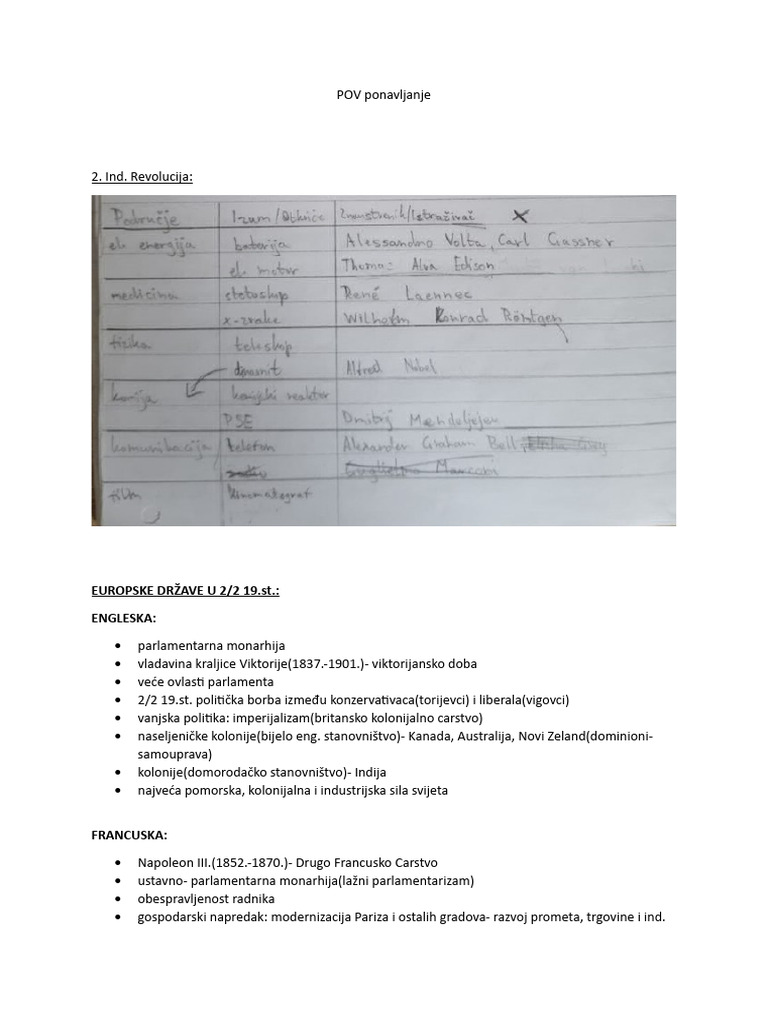 POV ponavljanje
2. Ind. Revolucija:
Područje Izum/Otkriće Znanstvenik/Istraživač X
el. energija baterija Alessandro Volta, Carl Gassner
el. motor Thomas Alva Edison
medicina stetoskop René Laennec
x-zrake Wilhelm Konrad Röntgen
fizika teleskop
dinamit Alfred Nobel
kemija kemijski reaktor
PSE Dmitrij Mendeljejev
komunikacija telefon Alexander Graham Bell,
Guglielmo Marconi
film kinematograf
EUROPSKE DRŽAVE U 2/2 19.st.:
ENGLESKA:
• parlamentarna monarhija
• vladavina kraljice Viktorije(1837.-1901.)- viktorijansko doba
• veće ovlasti parlamenta
• 2/2 19.st. politička borba između konzervativaca(torijevci) i liberala(vigovci)
• vanjska politika: imperijalizam(britansko kolonijalno carstvo)
• naseljeničke kolonije(bijelo eng. stanovništvo)- Kanada, Australija, Novi Zeland(dominioni-
samouprava)
• kolonije(domorodačko stanovništvo)- Indija
• najveća pomorska, kolonijalna i industrijska sila svijeta
FRANCUSKA:
• Napoleon III.(1852.-1870.)- Drugo Francusko Carstvo
• ustavno- parlamentarna monarhija(lažni parlamentarizam)
• obespravljenost radnika
• gospodarski napredak: modernizacija Pariza i ostalih gradova- razvoj prometa, trgovine i ind.